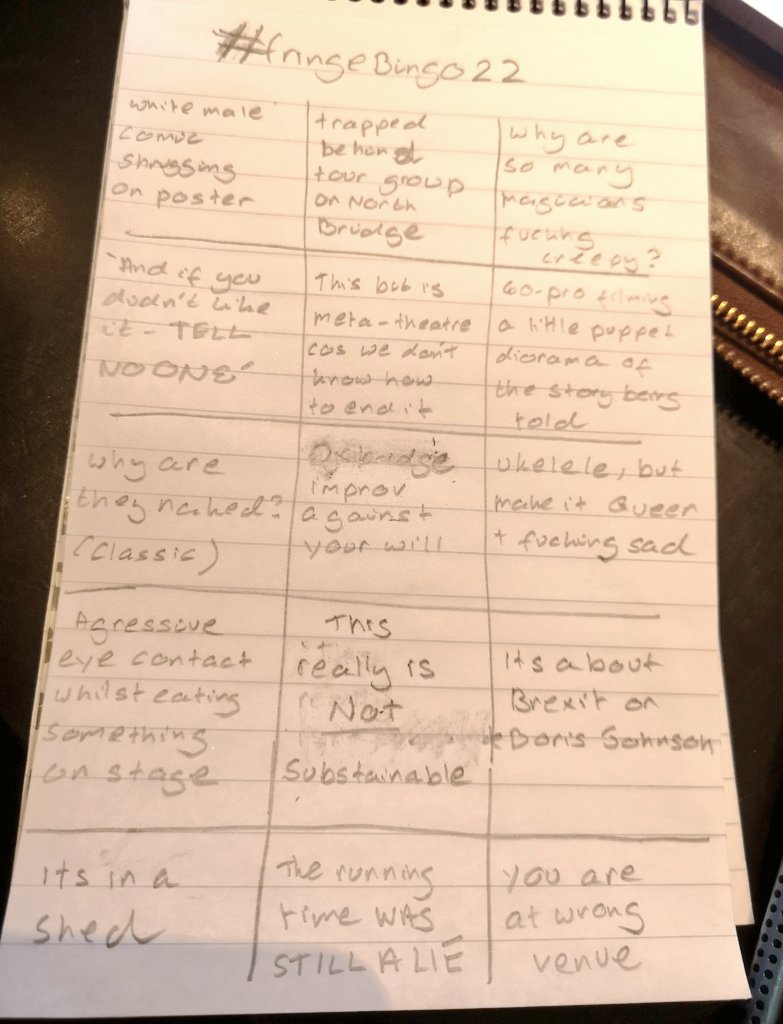 #fringeBingo22
white male
comic
shrugging
on poster
trapped
behind
tour group
on North
Bridge
why are
so many
magicians
fucking
creepy?
"And if you
didn't like
it - TELL
NO ONE"
This bit is
meta-theatre
cos we don't
know how
to end it
Go-pro filming
a little puppet
diorama of
the story being
told
why are
they naked?
(Classic)
Oxbridge
improv
against
your will
ukelele, but
make it Queer
+ fucking sad
Agressive
eye contact
whilst eating
something
on stage
This
really is
Not
Substainable
Its about
Brexit or
Boris Johnson
Its in a
shed
The running
time WAS
STILL A LIE
you are
at wrong
venue